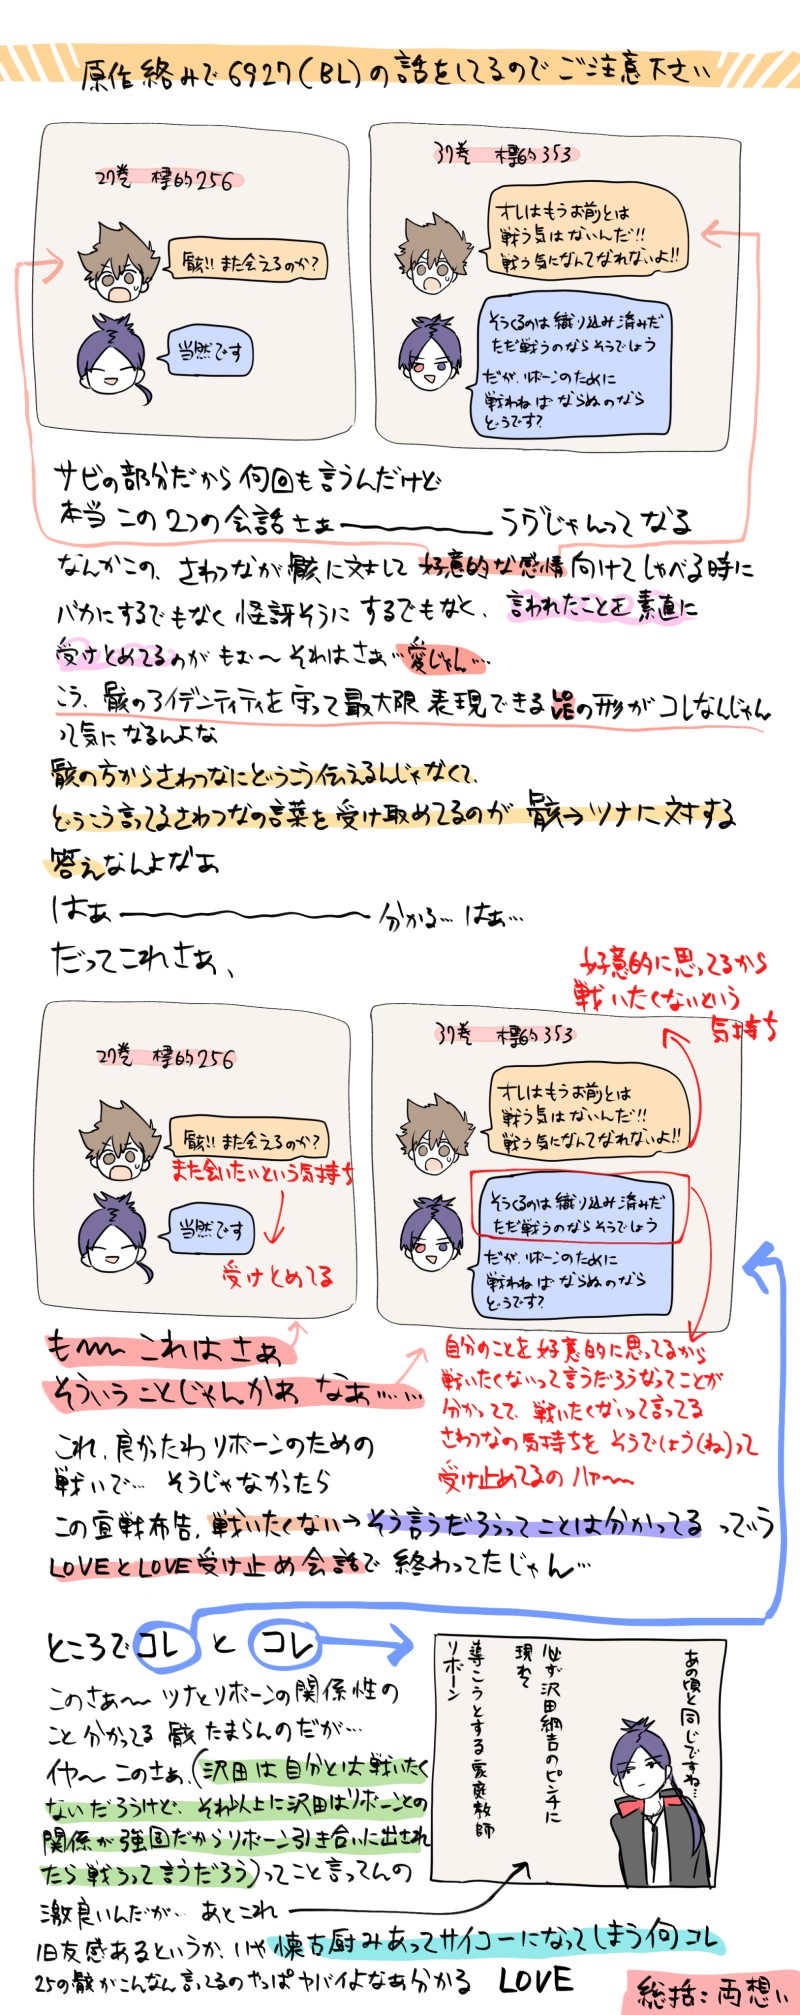 原作絡みで6927(BL)の話をしてるのでご注意下さい
27巻 標的256
骸!! また会えるのか?
当然です
37巻 標的353
オレはもうお前とは
戦う気はないんだ!!
戦う気になんてなれないよ!!
そうくるのは織り込み済みだ
ただ戦うのならそうでしょう
だが、リボーンのために
戦わねばならぬのなら
どうです?
サビの部分だから何回も言うんだけど
本当この2つの会話さぁ――――ラヴじゃんってなる
なんかこの、さわつなが骸に対して好意的な感情向けてしゃべる時に
バカにするでもなく怪訝そうにするでもなく、言われたことを素直に
受けとめてるのがもぉ〜それはさぁ…愛じゃん…
こう、骸のアイデンティティを守って最大限表現できる愛の形がコレなんじゃん
って気になるんよな
骸の方からさわつなにどうこう伝えるんじゃなくて、
どうこう言ってるさわつなの言葉を受け取めてるのが骸→ツナに対する
答えなんよなぁ
はぁ――――分かる…はぁ…
だってこれさぁ、
27巻 標的256
骸!! また会えるのか?
また会いたいという気持ち
当然です
受けとめてる
好意的に思ってるから
戦いたくないという
気持ち
37巻 標的353
オレはもうお前とは
戦う気はないんだ!!
戦う気になんてなれないよ!!
そうくるのは織り込み済みだ
ただ戦うのならそうでしょう
だが、リボーンのために
戦わねばならぬのなら
どうです?
も〜〜 これはさぁ
そういうことじゃんかぁ なぁ……
自分のことを好意的に思ってるから
戦いたくないって言うだろうなってことが
分かってて、戦いたくないって言ってる
さわつなの気持ちをそうでしょう(ね)って
受け止めてるの ハァ〜〜
これ、良かったわリボーンのための
戦いで… そうじゃなかったら
この宣戦布告、戦いたくない→そう言うだろうってことは分かってるっていう
LOVEとLOVE受け止め会話で終わってたじゃん…
ところでコレとコレ
このさぁ〜 ツナとリボーンの関係性の
こと分かってる骸たまらんのだが…
イヤ〜このさぁ、(沢田は自分とは戦いたく
ないだろうけど、それ以上に沢田はリボーンとの
関係が強固だからリボーン引き合いに出され
たら戦うって言うだろう)ってこと言ってんの
激良いんだが… あとこれ
あの頃と同じですね…
必ず沢田綱吉のピンチに
現れて
導こうとする家庭教師
リボーン
旧友感あるというか、いや懐古厨みあってサイコーになってしまう何コレ
25の骸がこんなん言ってるのやっぱヤバイよなあ分かる LOVE
総括:両想い